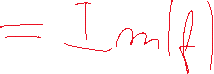 = Im(f)